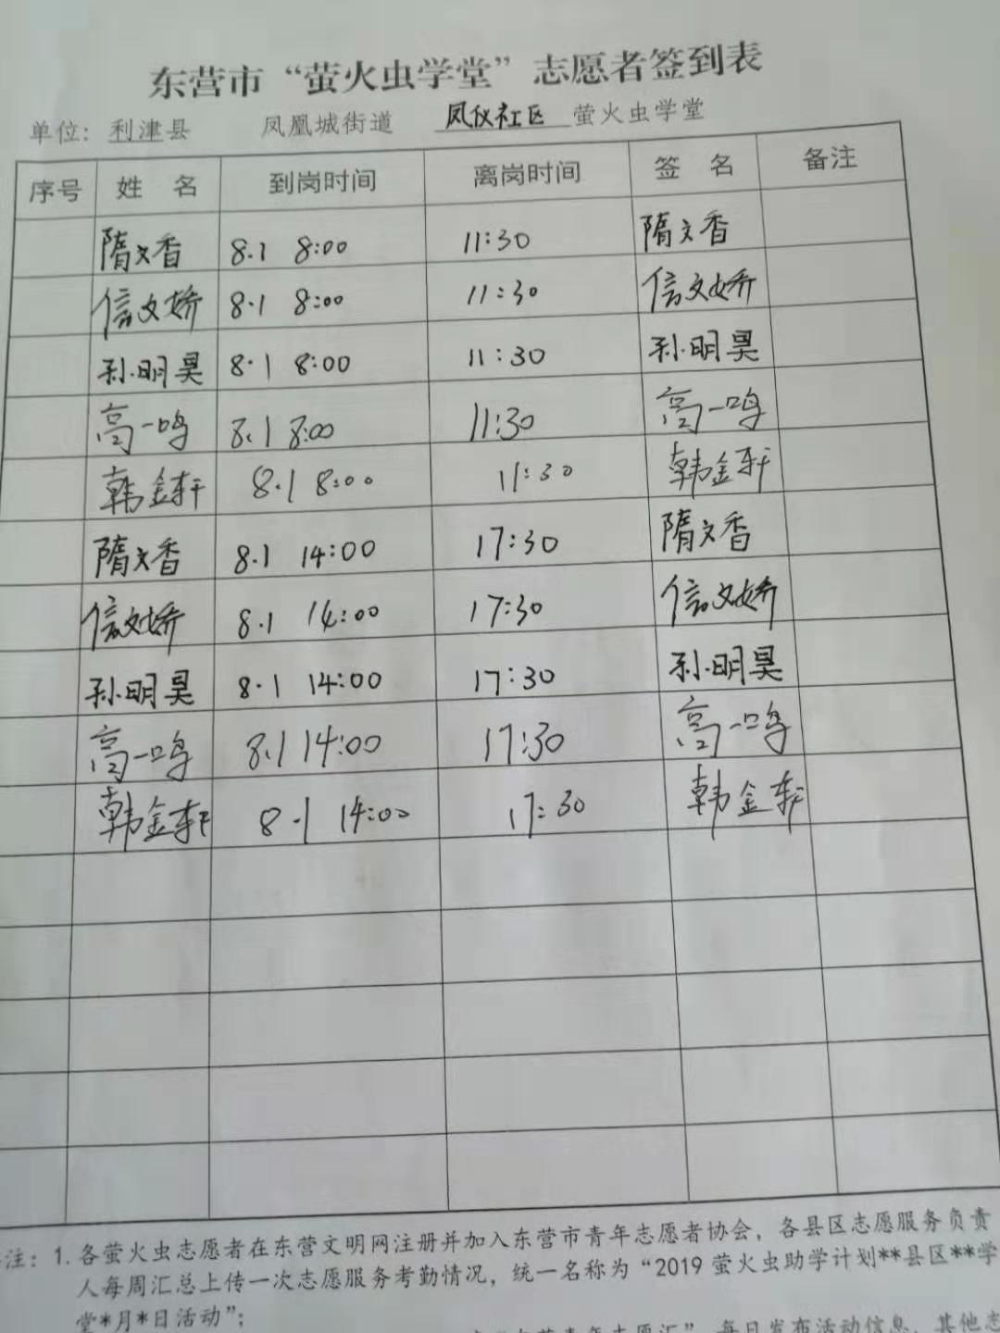 东营市“萤火虫学堂”志愿者签到表
单位：利津县 凤凰城街道 凤仪社区 萤火虫学堂
序号 姓 名 到岗时间 离岗时间 签 名 备注
隋文香 8.1 8:00 11:30 隋文香
信文娇 8.1 8:00 11:30 信文娇
孙明昊 8.1 8:00 11:30 孙明昊
高一鸣 8.1 8:00 11:30 高一鸣
韩金轩 8.1 8:00 11:30 韩金轩
隋文香 8.1 14:00 17:30 隋文香
信文娇 8.1 14:00 17:30 信文娇
孙明昊 8.1 14:00 17:30 孙明昊
高一鸣 8.1 14:00 17:30 高一鸣
韩金轩 8.1 14:00 17:30 韩金轩
注：1.各萤火虫志愿者在东营文明网注册并加入东营市青年志愿者协会，各县区志愿服务负责
人每周汇总上传一次志愿服务考勤情况，统一名称为“2019萤火虫助学计划**县区**学
堂*月*日活动”；
“东营青年志愿汇”，每日发布活动信息，其他志